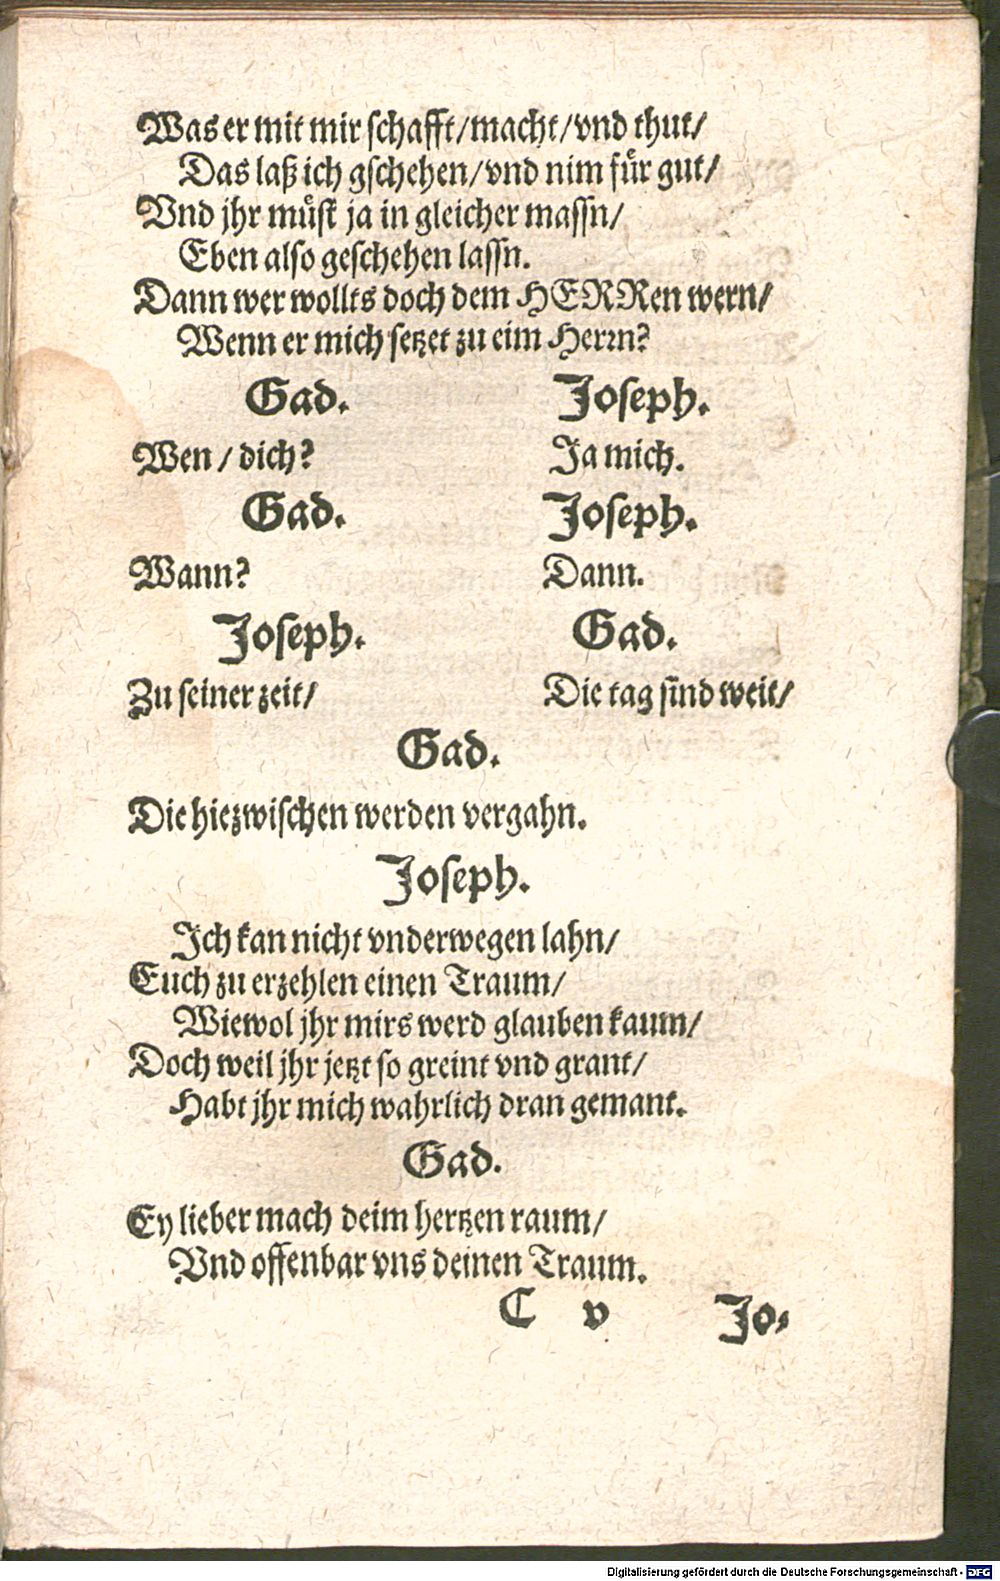 Was er mit mir schafft/macht/vnd thut/
Das laß ich gschehen/vnd nim für gut/
Vnd jhr müst ja in gleicher massn/
Eben also geschehen lassn.
Dann wer wollts doch dem HERRen wern/
Wenn er mich setzet zu eim Herrn?
Gad. Joseph.
Wen/dich? Ja mich.
Gad. Joseph.
Wann? Dann.
Joseph. Gad.
Zu seiner zeit/ Die tag sind weit/
Gad.
Die hiezwischen werden vergahn.
Joseph.
Ich kan nicht vnderwegen lahn/
Euch zu erzehlen einen Traum/
Wiewol jhr mirs werd glauben kaum/
Doch weil jhr jetzt so greint vnd grant/
Habt jhr mich wahrlich dran gemant.
Gad.
Ey lieber mach deim hertzen raum/
Vnd offenbar vns deinen Traum.
C v Jo-
Digitalisierung gefördert durch die Deutsche Forschungsgemeinschaft - DFG